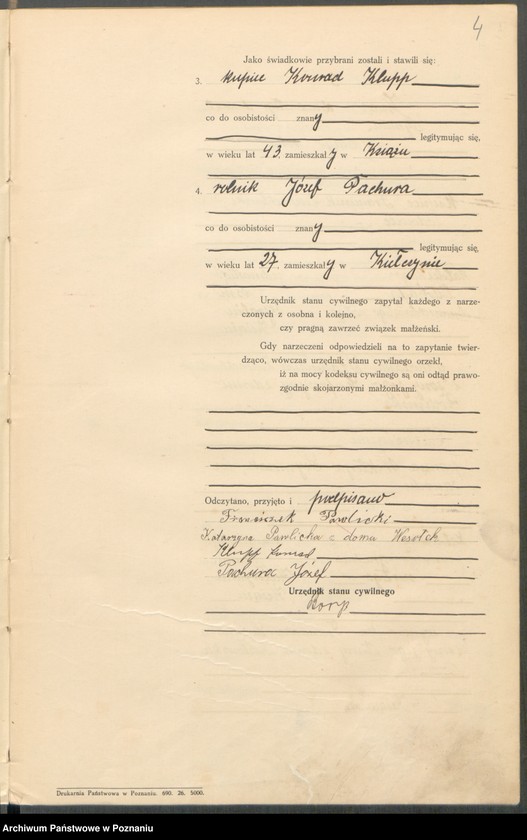 4
Jako świadkowie przybrani zostali i stawili się:
3. kupiec Konrad Klupp
co do osobistości znany
legitymując się,
w wieku lat 43, zamieszkały w Książu
4. rolnik Józef Pachura
co do osobistości znany
legitymując się,
w wieku lat 27, zamieszkały w Kiełczynie
Urzędnik stanu cywilnego zapytał każdego z narze-
czonych z osobna i kolejno,
czy pragną zawrzeć związek małżeński.
Gdy narzeczeni odpowiedzieli na to zapytanie twier-
dząco, wówczas urzędnik stanu cywilnego orzekł,
iż na mocy kodeksu cywilnego są oni odtąd prawo-
zgodnie skojarzonymi małżonkami.
Odczytano, przyjęto i podpisano
Franciszek Pawlicki
Katarzyna Pawlicka z domu
Klupp Konrad
Pachura Józef
Urzędnik stanu cywilnego
Drukarnia Państwowa w Poznaniu. 690. 26. 5000.
Archiwum Państwowe w Poznaniu